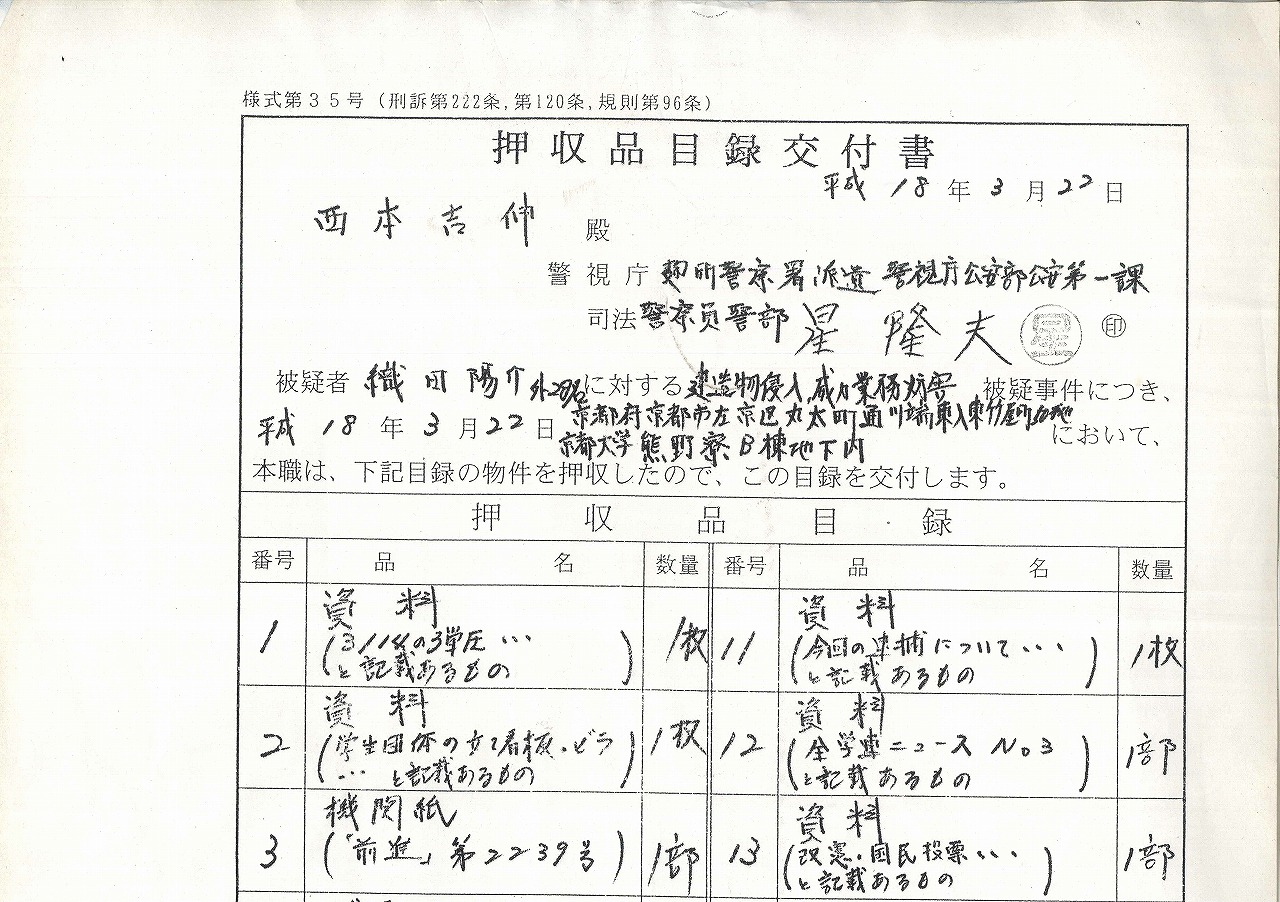 様式第35号(刑訴第222条,第120条,規則第96条)
押収品目録交付書
平成18年3月22日
西本吉伸 殿
警視庁 麹町警察署派遣 警視庁公安部公安第一課
司法警察員警部 星 隆夫 星 ㊞
被疑者 織田陽介 外28名に対する建造物侵入,威力業務妨害 被疑事件につき、
平成18年3月22日 京都府京都市左京区丸太町通川端東入東竹屋町50番地
京都大学熊野寮B棟地下内 において、
本職は、下記目録の物件を押収したので、この目録を交付します。
押収品目録
番号 品名 数量 番号 品名 数量
1 資料 (3/14の3弾圧… と記載あるもの) 1枚
11 資料 (今回の逮捕について… と記載あるもの) 1枚
2 資料 (学生団体の立て看板・ビラ… と記載あるもの) 1枚
12 資料 (全学連ニュース No3 と記載あるもの) 1部
3 機関紙 (「前進」第2239号) 1部
13 資料 (改憲・国民投票… と記載あるもの) 1部